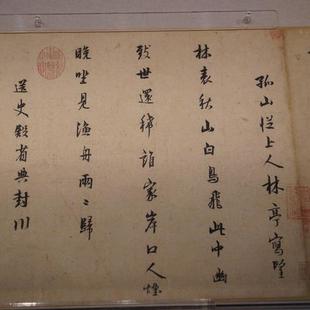 孤山從上人林亭寫望
林表秋山白鳥飛此中幽
致世還稀誰家岸口人煙
晚坐見漁舟兩〻歸
送史殿省典封川